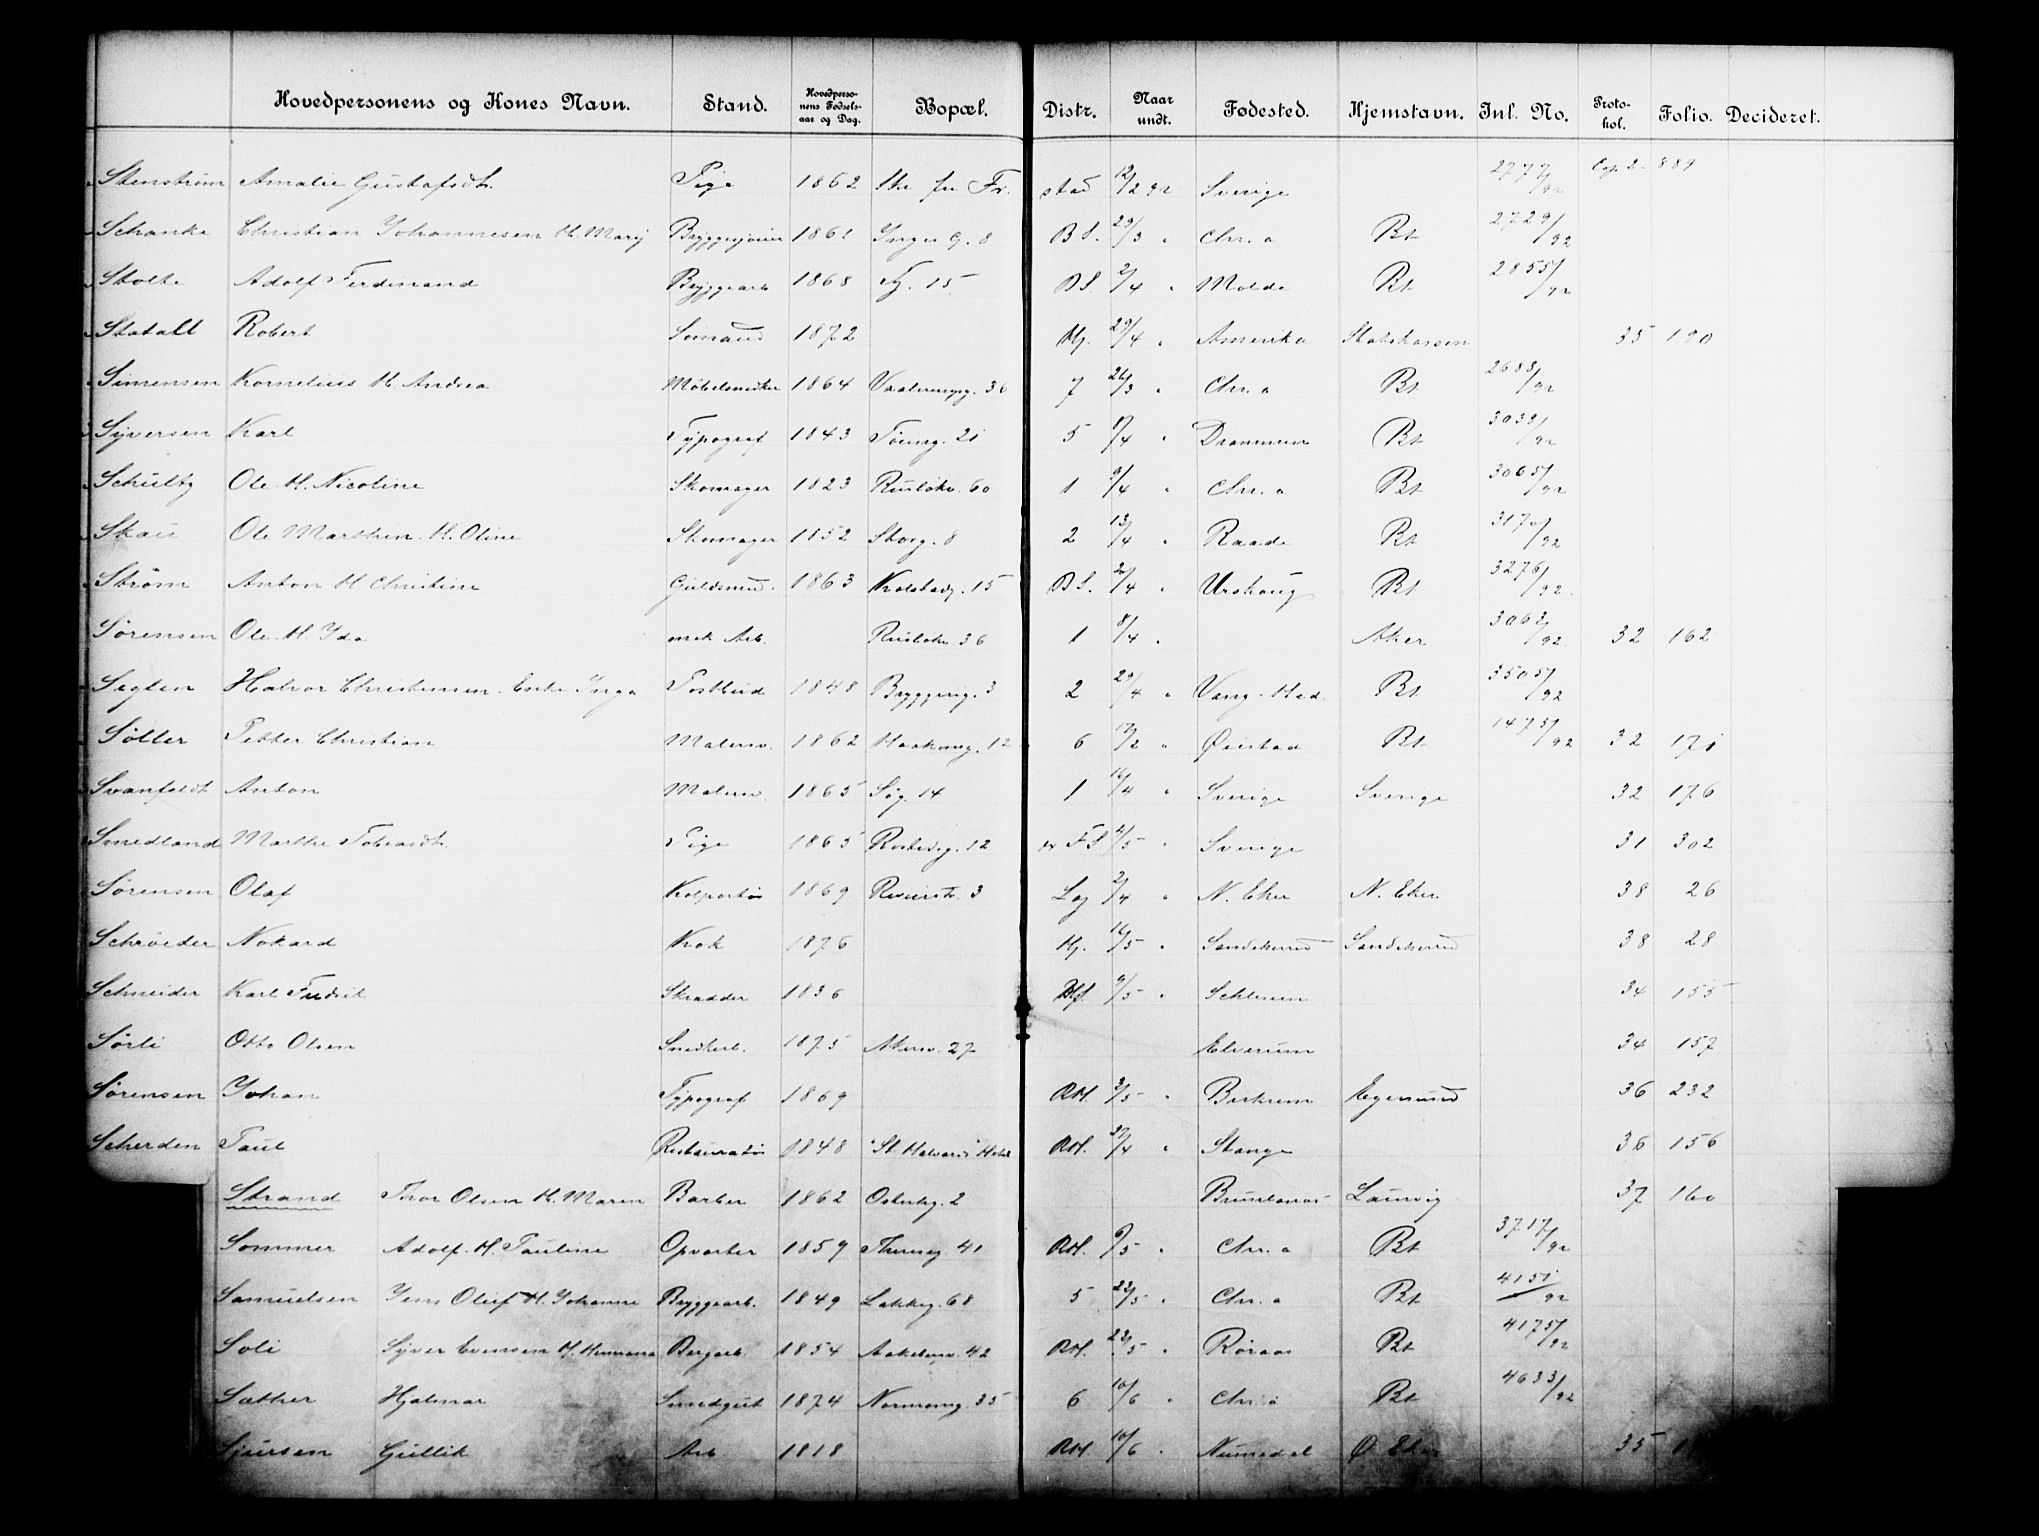 Hovedpersonens og Kones Navn. Stand. Hovedperso- nens Fødsels- aar og Dag. Bopæl. Distr. Naar undt. Fødested. Hjemstavn. Inl. No. Proto- kol. Folio. Decideret.
Stenstrøm Amalie Gustafsdt. Pige 1862 Fr. stad 12/2 92 Sverige 2777/92 Cop. 2 889
Schanke Christian Johannesen H. Marij 1861 Inges G. 8 B S. 29/3 " Chr. a Bt 2729/92
Stolte Adolf Ferdinand Bryggearb 1868 15 B S. 2/4 " Molde Bt 2855/92
Robert Sømand 1872 Hj. 29/4 " Amerika Statskassen 35 190
Simensen Kornelius H. Andrea Møbelsnedker 1864 Vaalerengg. 36 7 26/3 " Chr. a Bt 2688/92
Syversen Karl Typograf 1843 Tøieng. 21 5 8/4 " Drammen Bt 3033/92
Schultz Ole H. Nicoline Skomager 1823 Rusløkv. 60 1 9/4 " Chr. a Bt 3065/92
Skau Ole Marthin H. Oline Skomager 1852 Storg. 8 2 13/4 " Raade Bt 3170/92
Strøm Anton H Christine Guldsmed. 1863 Kolstadg. 15 B S. 20/4 " Urskoug Bt 3276/92
Sørensen Ole H. Ida mek Arb. Rusløkv. 36 1 8/4 " Aker 3062/92 32 162
Seglen Halvor Christensen Enke Inga Postbud 1848 Bryggeng. 3 2 29/4 " Vang Hed. Bt 3505/92
Søller Petter Christian Malersv. 1862 Haakong. 12 6 12/2 " Øiestad Bt 1475/92 32 171
Svanfeldt Anton Malersv. 1865 Søg. 14 1 16/4 " Sverige Sverige 32 176
Smedland Marthe Tobiasdt. Pige 1865 Rostedsg. 12 F S 4/5 " Sverige 31 302
Sørensen Olaf Kolportør 1869 Revierstr. 3 Lag 2/4 " N. Eker N. Eker 38 26
Schrøeder Nokard Kok 1876 Hj. 16/5 " Sandeherred Sandeherred 38 28
Schneider Karl Fredrik Skradder 1836 6/5 " Schlesien 34 155
Sørli Otto Olsen Snedkerl. 1875 Akersv. 27 Elverum 34 157
Sørensen Johan Typograf 1869 RH. 3/5 " Birkrem Egersund 36 232
Scherden Paul Restauratør 1848 "St Halvards" Hotel RH. 27/4 " Stange 36 156
Strand Thor Olsen H. Maren Barber 1862 Osterhg. 2 Brunlanæs Laurvig 37 160
Sommer Adolf H. Pauline Opvarter 1859 Thereseg 41 RH. 6/5 " Chr. a Bt 3717/92
Samuelsen Jens Oluf H. Johanne Bryggearb. 1849 Lakkeg. 68 5 23/5 " Chr. a Bt 4151/92
Soli Syver Evensen H. Hermana Bergarb. 1854 Aakebergv. 42 RH. 23/5 " Røraas Bt 4175/92
Sæther Hjalmar Sendgut 1874 Normanng. 35 6 10/6 " Chr. a Bt 4633/92
Sjursen Gullik Arb 1818 RH. 10/6 " Numedal Ø. Eker 35